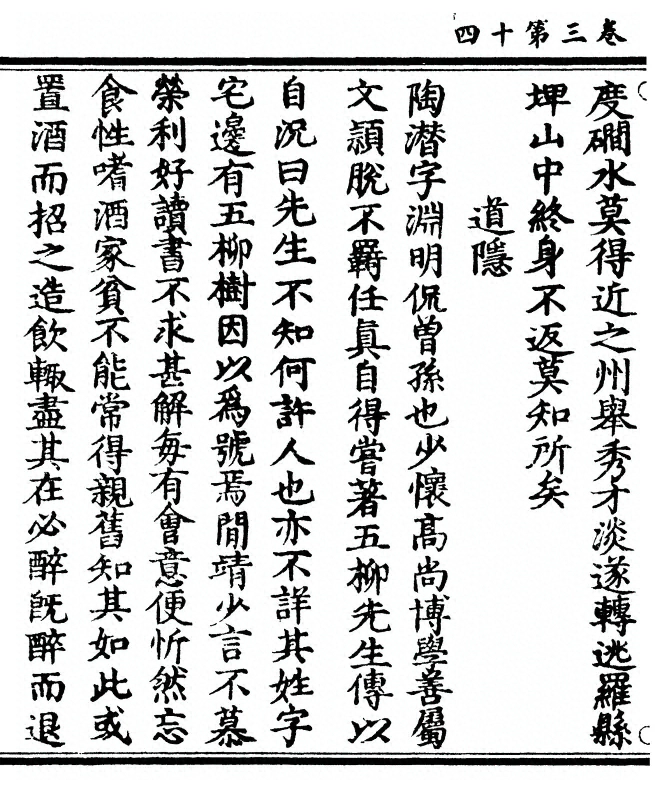 卷三第十四
度磵水莫得近之州舉秀才淡遂轉逃羅縣
埤山中終身不返莫知所矣
道隱
陶潛字淵明侃曾孫也少懷高尚博學善屬
文穎脫不羈任眞自得嘗著五柳先生傳以
自况曰先生不知何許人也亦不詳其姓字
宅邊有五柳樹因以爲號焉閒靖少言不慕
榮利好讀書不求甚解每有會意便忻然忘
食性嗜酒家貧不能常得親舊知其如此或
置酒而招之造飲輙盡其在必醉旣醉而退